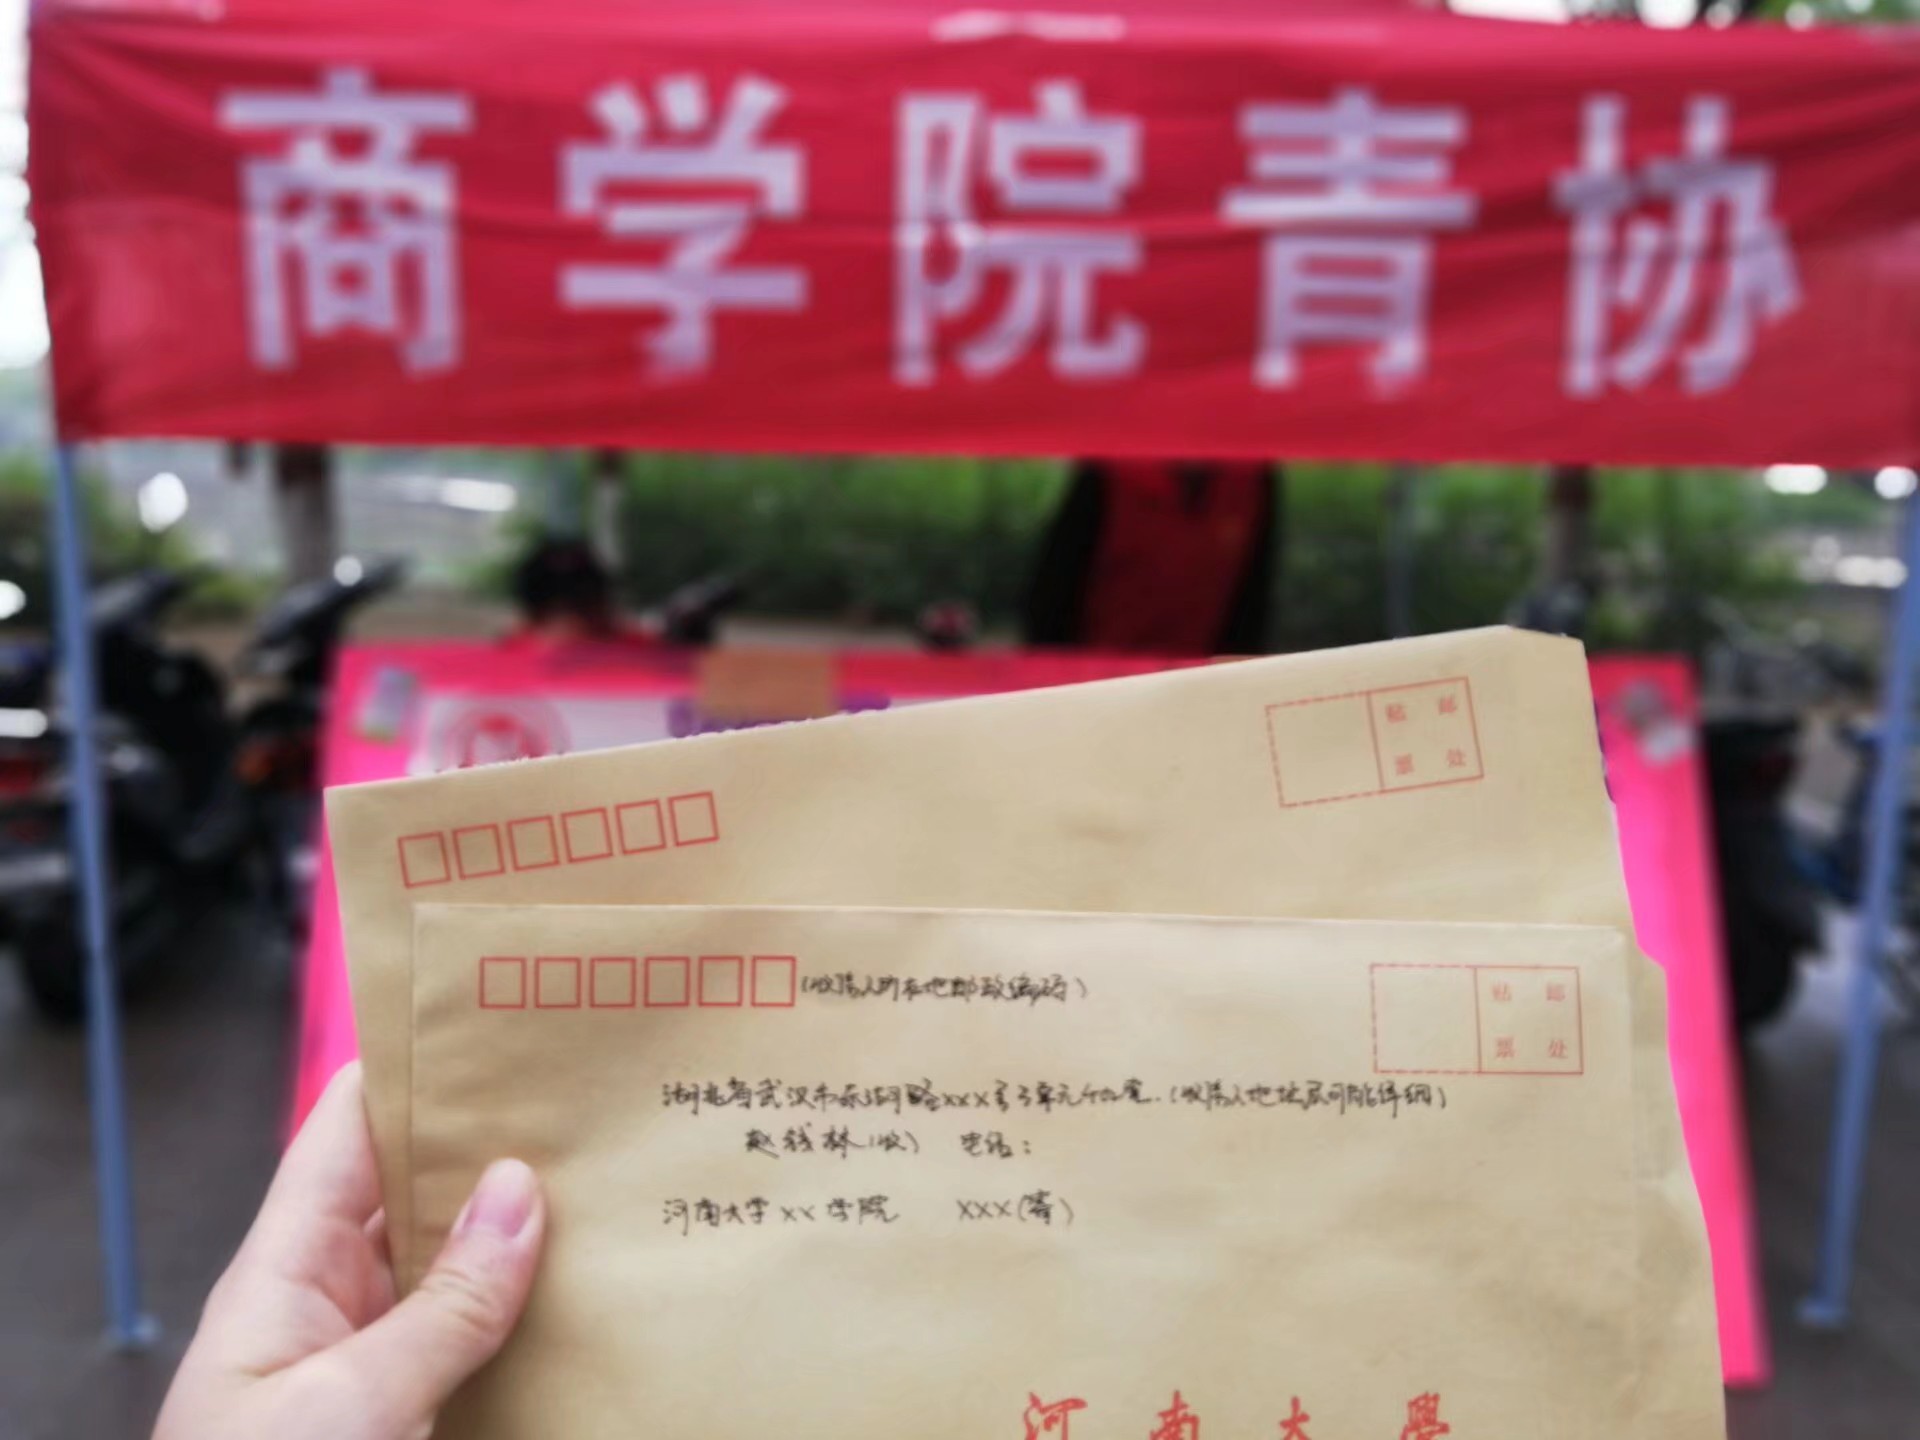 商学院青协
贴邮
票处
(收信人所在地邮政编码)
贴邮
票处
湖北省武汉市东湖路xxx号3单元402室.(收信人地址尽可能详细)
赵钱林(收) 电话:
河南大学xx学院 XXX(寄)
河南大學